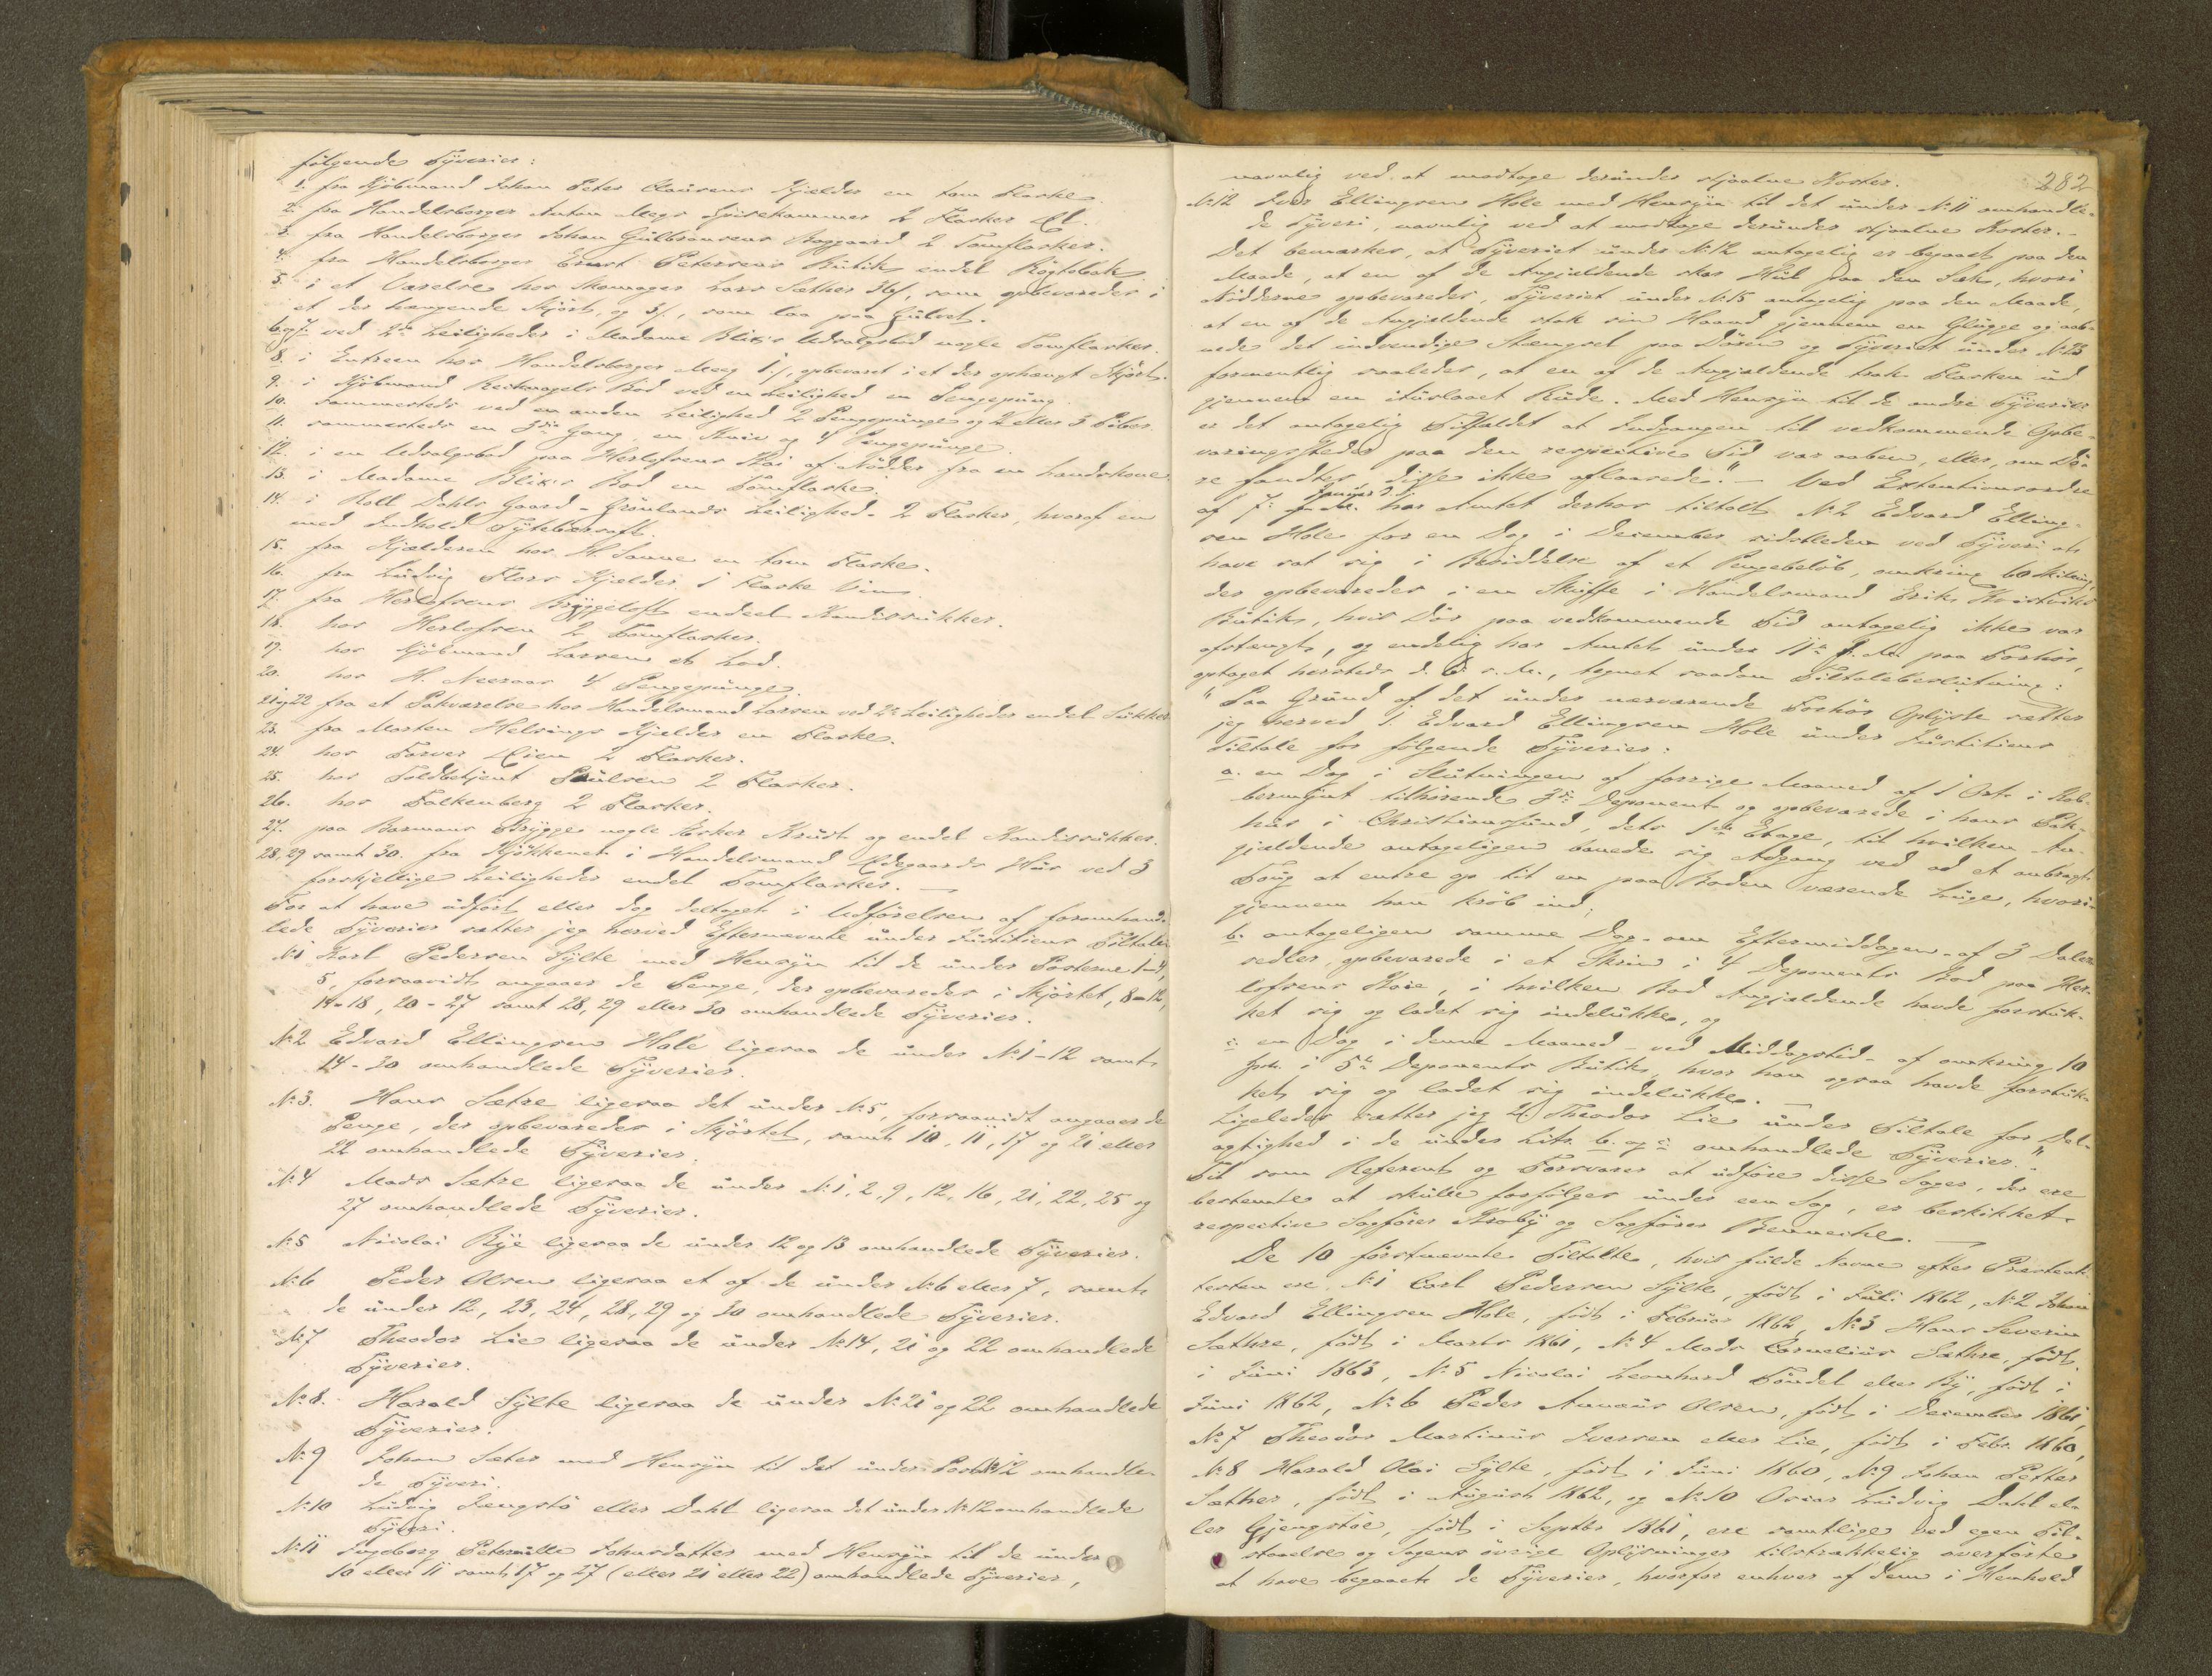 følgende Tyverier:
1. fra Kjøbmand Johan Peter Clausens Kjælder en tom Flaske.
2. fra Handelsborger Anton Meegs Spisekammer 2 Flasker Øl.
3. fra Handelsborger Johan Gulbransens Baggaard 2 Tomflasker.
4. fra Handelsborger Ernst Petersens Butik endel Røgtobak
5. i et Værelse hos Skomager Lars Sæther 36 s, som opbevaredes i
et der hængende Skjørt, og 3 s, som laa paa Gulvet.
6 og 7. ved 2de Leiligheder i Madame Blix's Udsalgsbod nogle Tomflasker.
8. i Entreen hos Handelsborger Meeg 1 s, opbevaret i et der ophængt Skjørt.
9. i Kjøbmand Reitnagels Bod ved en Leilighed en Pengepung.
10. sammesteds ved en anden Leilighed 2 Pengepunge og 2 eller 3 Piber.
11. sammesteds en 3die Gang, en Kniv og 4 Pengepunge.
12. i en Udsalgsbod paa Herlofsens Kai af Nødder fra en Landskone
13. i Madame Blix's Bod en Tomflaske.
14. i Roll Dahls Gaard - Grønlands Leilighed - 2 Flasker, hvoraf en
med Indhold Tyttebærsaft.
15. fra Kjælderen hos H. Sanne en tom Flaske.
16. fra Ludvig Flors Kjælder 1 Flaske Vin.
17. fra Herlofsens Bryggeloft endeel Kandissukker.
18. hos Herlofsen 2 Tomflasker.
19. hos Kjøbmand Larsen et Lod.
20. hos H. Neeraas 4 Pengepunge.
21 og 22 fra et Pakværelse hos Handelsmand Larsen ved 2de Leiligheder endel Sukker
23. fra Morten Helsings Kjælder en Flaske.
24. hos Farver Øien 2 Flasker.
25. hos Toldbetjent Paulsen 2 Flasker.
26. hos Falkenberg 2 Flasker.
27. paa Barmans Brygge nogle Æsker Krudt og endel Kandissukker.
28, 29 samt 30. fra Kjøkkenet i Handelsmand Ødegaards Hus ved 3
forskjellige Leiligheder endel Tomflasker. —
For at have udført eller dog deltaget i Udførelsen af foromhand-
lede Tyverier sætter jeg herved Efternævnte under Justitiens Tiltale:
No 1 Karl Pedersen Sylte med Hensyn til de under Posterne 1-4,
5, forsaavidt angaaer de Penge, der opbevaredes i Skjørtet, 8-12,
14-18, 20-27 samt 28, 29 eller 30 omhandlede Tyverier.
No 2 Edvard Ellingsen Hole ligesaa de under No 1-12 samt
14-30 omhandlede Tyverier.
No 3. Hans Sætre ligesaa det under No 5, forsaavidt angaaer de
Penge, der opbevaredes i Skjørtet, samt 10, 11, 17 og 21 eller
22 omhandlede Tyverier.
No 4 Mads Sætre ligesaa de under No 1, 2, 9, 12, 16, 21, 22, 25 og
27 omhandlede Tyverier.
No 5 Nicolai Rye ligesaa de under 12 og 13 omhandlede Tyverier.
No 6 Peder Olsen ligesaa et af de under No 6 eller 7, samt
de under 12, 23, 24, 28, 29 og 30 omhandlede Tyverier.
No 7 Theodor Lie ligesaa de under No 14, 21 og 22 omhandlede
Tyverier.
No 8. Harald Sylte ligesaa de under No 21 og 22 omhandlede
Tyverier.
No 9 Johan Sæter med Hensyn til det under Post 12 omhandle-
de Tyveri.
No 10 Ludvig Jengstø eller Dahl ligesaa det under No 12 omhandlede
Tyveri.
No 11 Ingeborg Peternille Johnsdatter med Hensyn til de under
10 eller 11 samt 17 og 27 (eller 21 eller 22) omhandlede Tyverier,
282
navnlig ved at modtage derunder stjaalne Koster.
No 12 Iver Ellingsen Hole med Hensyn til det under No 11 omhandle-
de Tyveri, navnlig ved at modtage derunder stjaalne Koster. -
Det bemærkes, at Tyveriet under No 12 antagelig er begaaet paa den
Maade, at en af de Angjældende skar Hul paa den Sæk, hvori
Nødderne opbevaredes, Tyveriet under No 15 antagelig paa den Maade,
at en af de Angjældende stak sin Haand gjennem en Glugge og aab-
nede det indvendige Stængsel paa Døren og Tyveriet under No 23
formentlig saaledes, at en af de Angjældende trak Flasken ud
gjennem en ituslaaet Rude. Med Hensyn til de andre Tyverier
er det antagelig Tilfældet at Indgangen til vedkommende Opbe-
varingssteder paa den respective Tid var aaben, eller, om Dø-
re fandtes, disse ikke aflaasede." - Ved Extentionsordre
af 7. Januar d. A. har Amtet derhos tiltalt No 2 Edvard Elling-
sen Hole for en Dag i December sidstleden ved Tyveri at
have sat sig i Besiddelse af et Pengebeløb, omkring 60 Skilling,
der opbevaredes i en Skuffe i Handelsmand Eriks Kvistviks
Butik, hvis Dør paa vedkommende Tid antagelig ikke var
afstængt, og endelig har Amtet under 11te paa Forhør,
optaget hersteds d. 6 s. M., tegnet saadan Tiltalebeslutning:
"Paa Grund af det under nærværende Forhør Oplyste sætter
jeg herved 1. Edvard Ellingsen Hole under Justitiens
Tiltale for følgende Tyverier:
a. en Dag i Slutningen af forrige Maaned af 1 Ort i Kob-
bermynt tilhørende 3die Deponent og opbevarede i hans Pak-
hus i Christianssund, dets 1ste Etage, til hvilken An-
gjældende antageligen banede sig Adgang ved ad et anbragt
Toug at entre op til en paa Boden værende Luge, hvori-
gjennem han krøb ind;
b. antageligen samme Dag - om Eftermiddagen - af 3 Daler-
sedler, opbevarede i et Skrin i 4 Deponents Bod paa Her-
lofsens Kaie, i hvilken Bod Angjældende havde forstuk-
ket sig og ladet sig indelukke, og
c. en Dag i denne Maaned - ved Middagstid - af omkring 10
i 5te Deponents Butik, hvor han ogsaa havde forstuk-
ket sig og ladet sig indelukke. —
Ligeledes sætter jeg 2. Theodor Lie under Tiltale for Del-
agtighed i de under Litr. b. og c. omhandlede Tyverier."
Til som Referent og Forsvarer at udføre disse Sager, der ere
bestemte at skulle forfølges under een Sag, er beskikket
respective Sagfører Kroby og Sagfører Benneche. —
De 10 førstnævnte Tiltalte, hvis fulde Navne efter Præsteat-
testen ere No 1 Carl Pedersen Sylte, født i Juli 1862, No 2 Johan
Edvard Ellingsen Hole, født i Februar 1862, No 3 Hans Severin
Sæthre, født i Marts 1861, No 4 Mads Cornelius Sæthre, født
i Juni 1863, No 5 Nicolai Leonhard Tøndel eller Ry, født i
Juni 1862, No 6 Peder Olsen, født i December 1861,
No 7 Theodor Martinus Iversen eller Lie, født i Febr. 1860,
No 8 Harald Olai Sylte, født i Juni 1860, No 9 Johan Petter
Sæther, født i August 1862, og No 10 Oscar Ludvig Dahl el-
ler Gjengstøe, født i Septbr 1861, ere samtlige ved egen Til-
staaelse og Sagens øvrige Oplysninger tilstrækkelig overførte
at have begaaet de Tyverier, hvorfor enhver af dem i Henhold